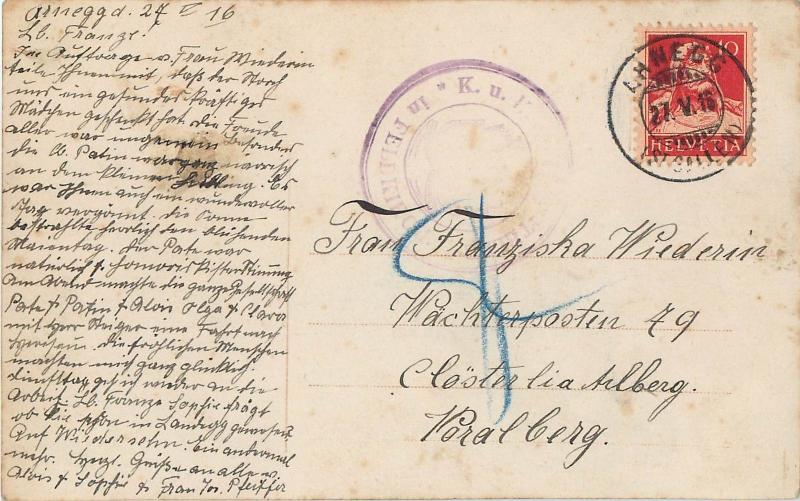 Arnegg d. 27 V 16
Lb. Franze!
Im Auftrage v. Frau Wiederin
teile Ihnen mit, daß der Storch
uns ein gesundes kräftiges
Mädchen geschenkt hat die Freude
aller war ungemein besonders
die lb. Patin war ganz närrisch
an dem kleinen Es
war Ihnen auch ein wundervoller
Tag vergönnt. die Sonne
bestrahlte herrlich den blühenden
Maientag. Der Pate war
natürlich in Stimmung
Am Abend machte die ganze Gesellschaft
Pate & Patin & Alois Olga & Clara
mit Herr Steiger eine Fahrt nach
Herisau. die fröhlichen Menschen
machten mich ganz glücklich.
Dienstag geh ich wieder an die
Arbeit. Lb. Franze Sophie frägt
ob Sie schon in Landegg gewesen.
Auf Wiedersehn. ein andermal
mehr. Herzl. Grüße an alle v.
Alois & Sophie & Frau Jos. Pfeiffer
K. u.
in FELDKIRCH
HELVETIA
10
ARNEGG
27.V.16
(ST.GALLEN)
4
Frau Franziska Wiederin
Wächterposten 79
Clösterlia Arlberg.
Voralberg.